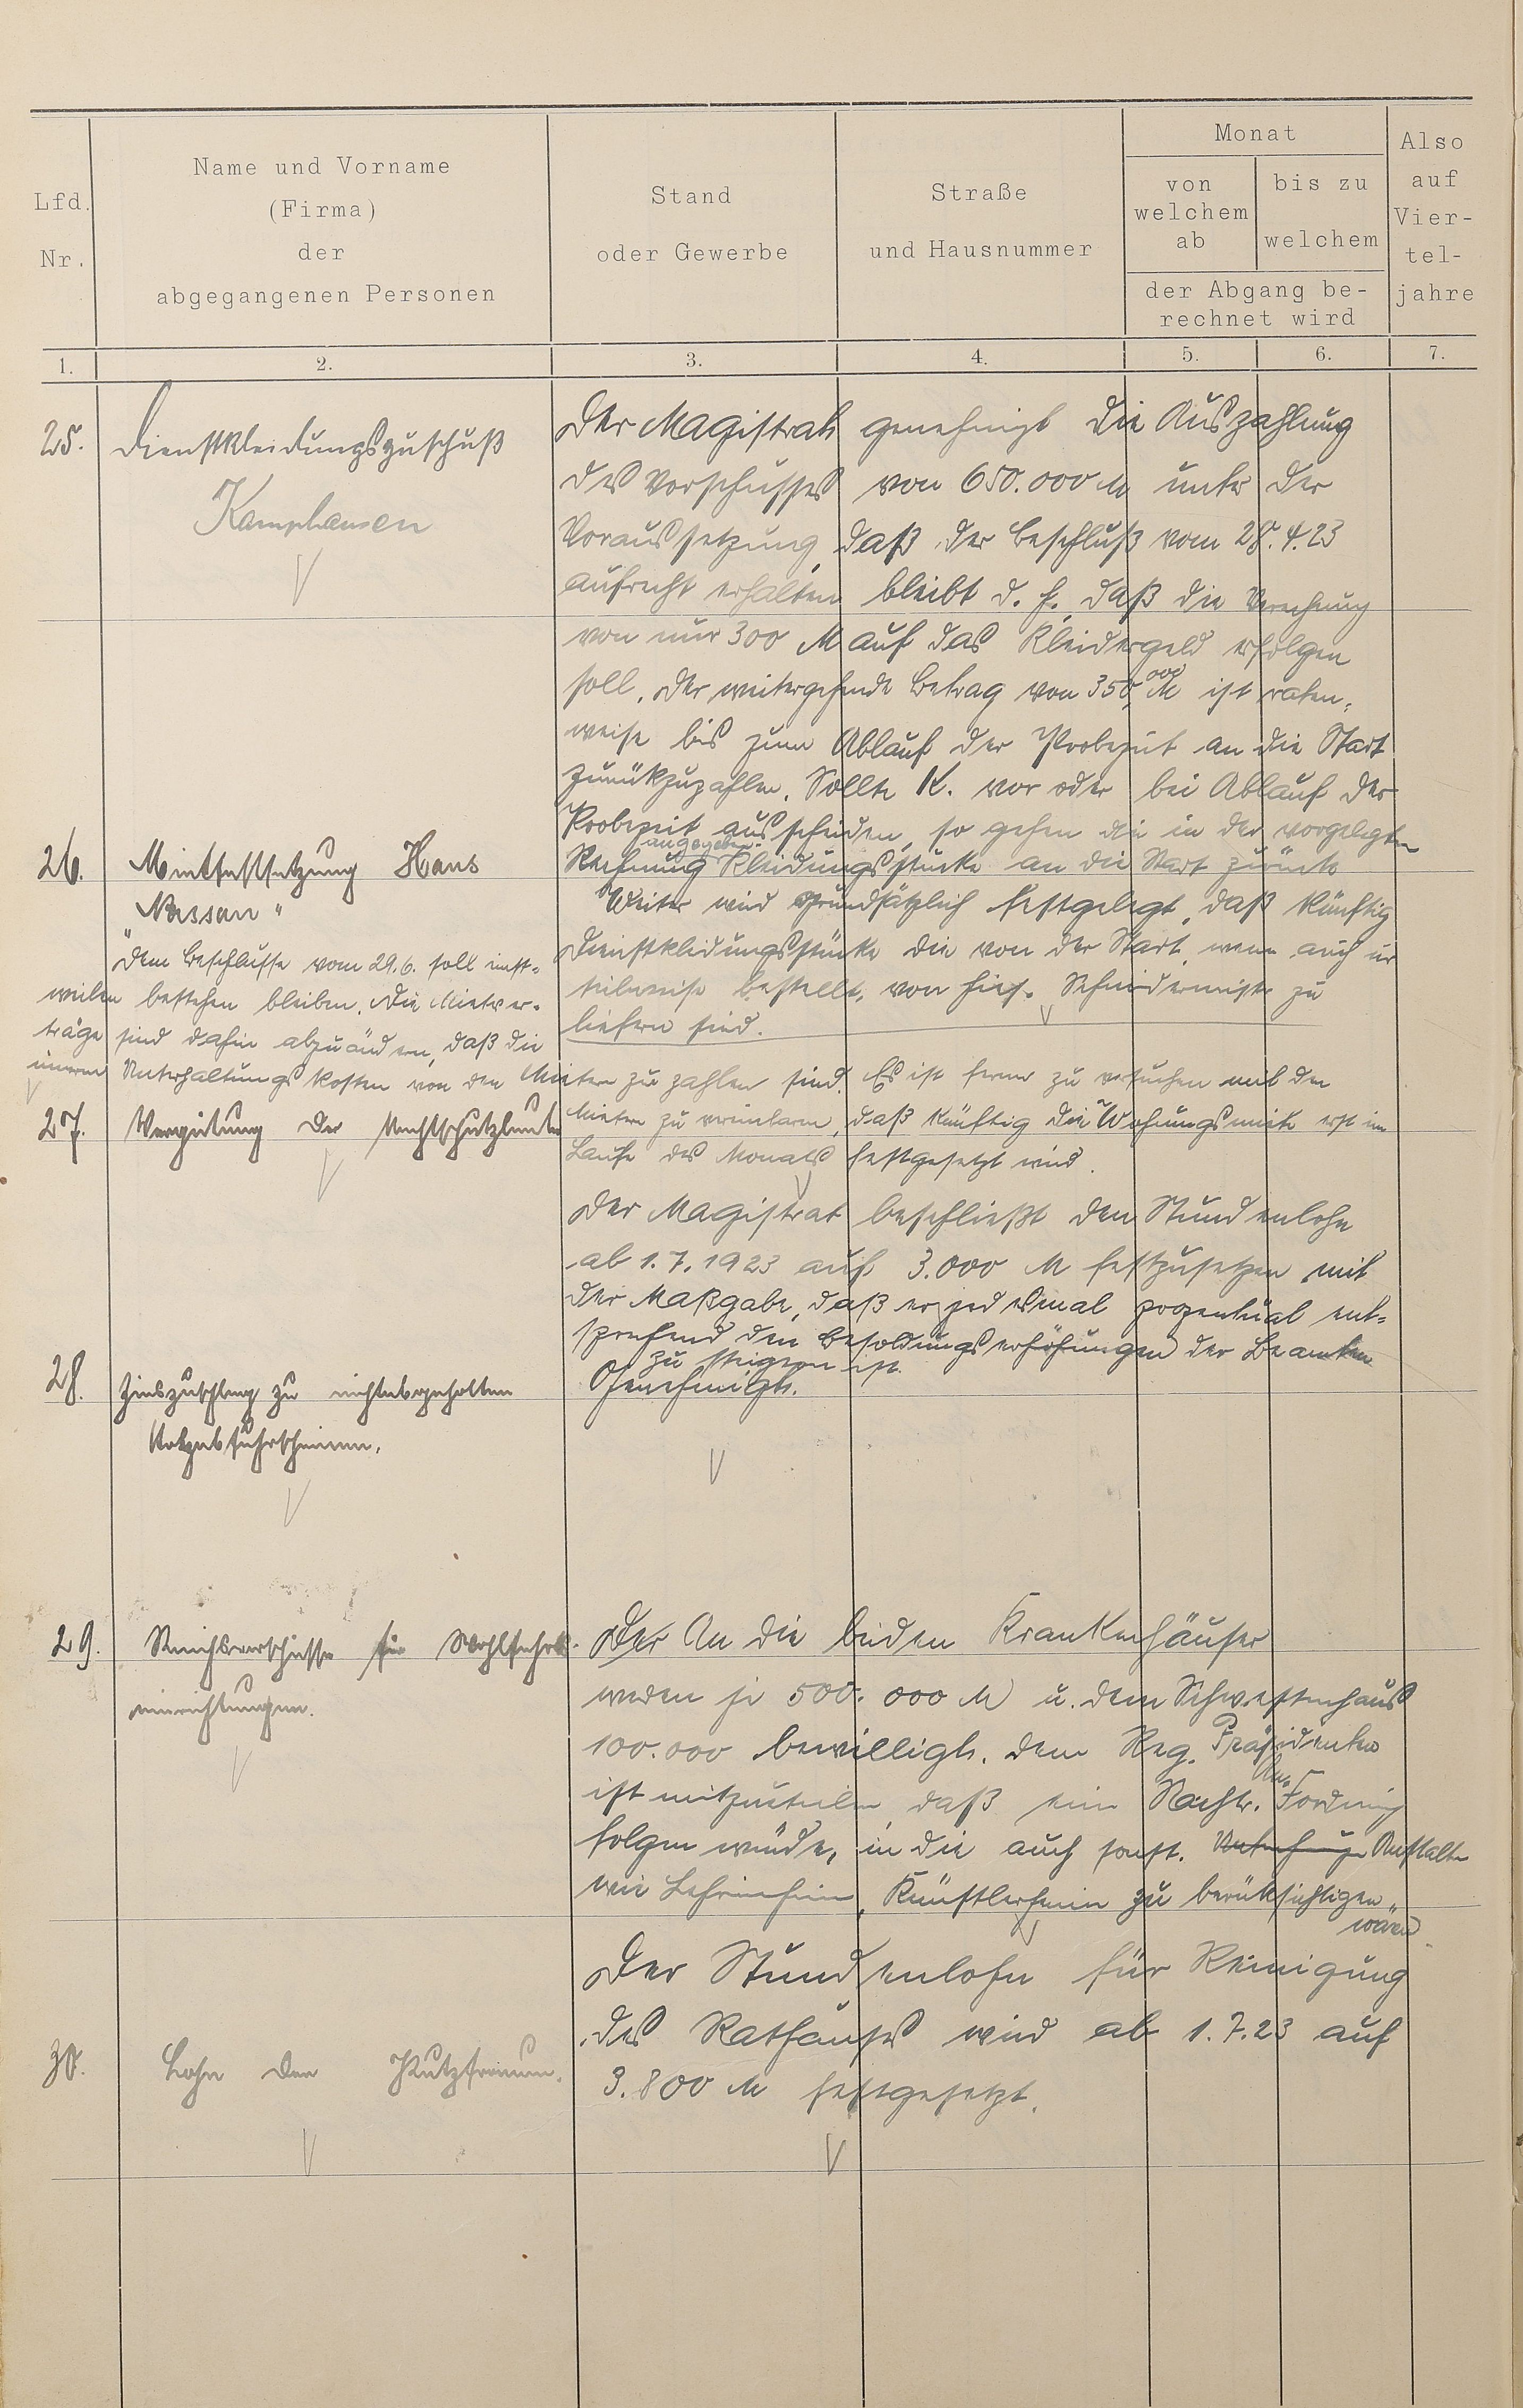 Lfd. Nr.
Name und Vorname
(Firma)
der
abgegangenen Personen
Stand
oder Gewerbe
Straße
und Hausnummer
Monat
von
welchem
ab
bis zu
welchem
der Abgang be-
rechnet wird
Also
auf
Vier-
tel-
jahre
1. 2. 3. 4. 5. 6. 7.
25. Dienstkleidungszuschuß
Kamphausen
Der Magistrat genehmigt die Auszahlung
des Vorschusses von 650.000 M unter der
Voraussetzung, daß der Beschluß vom 28.4.23
aufrecht erhalten bleibt d. h. daß die Verrechnung
von nur 300 M auf das Kleidergeld erfolgen
soll. Der weitergehende Betrag von 350,000 M ist raten-
weise bis zum Ablauf der Probezeit an die Stadt
zurückzuzahlen. Sollte K. vor oder bei Ablauf der
Probezeit ausscheiden, so gehen die in der vorgelegten
Rechnung angegeben. Kleidungsstücke an die Stadt zurück
Weiter wird grundsätzlich festgelegt, daß künftig
Dienstkleidungsstücke die von der Stadt, wenn auch nur
teilweise bestellt, von hies. Schneidermstr. zu
liefern sind.
26. Mietfestsetzung Haus
"Nassau"
Dem Beschlusse vom 29.6. soll einst-
weilen bestehen bleiben. Die Mietver-
träge sind dahin abzuändern, daß die
inneren Unterhaltungskosten von den Mietern zu zahlen sind. Es ist ferner zu versuchen mit den
Mietern zu vereinbaren, daß künftig die Wohnungsmiete erst im
Laufe des Monats festgesetzt wird.
27. Vergütung der Nachtschutzleute
Der Magistrat beschließt den Stundenlohn
ab 1.7.1923 auf 3.000 M festzusetzen mit
der Maßgabe, daß er jedesmal prozentual ent-
sprechend den Besoldungserhöhungen der Beamten
zu steigern ist.
28. Zinszuschlag zu nichtabgeholten
Holzabfuhrscheinen.
Genehmigt.
29. Reichsvorschüsse für Wohlfahrts-
einrichtungen.
Der An die beiden Krankenhäuser
werden je 500.000 M u. dem Schwesternhaus
100.000 bewilligt. Dem Reg. Präsidenten
ist mitzuteilen, daß eine Nachtr. Forderung
folgen würde, in die auch sonst. Anstalten
wie Lehrerinheim, Künstlerheim zu berücksichtigen
wären.
30. Lohn der Putzfrauen.
Der Stundenlohn für Reinigung
des Rathauses wird ab 1.7.23 auf
3.800 M festgesetzt.